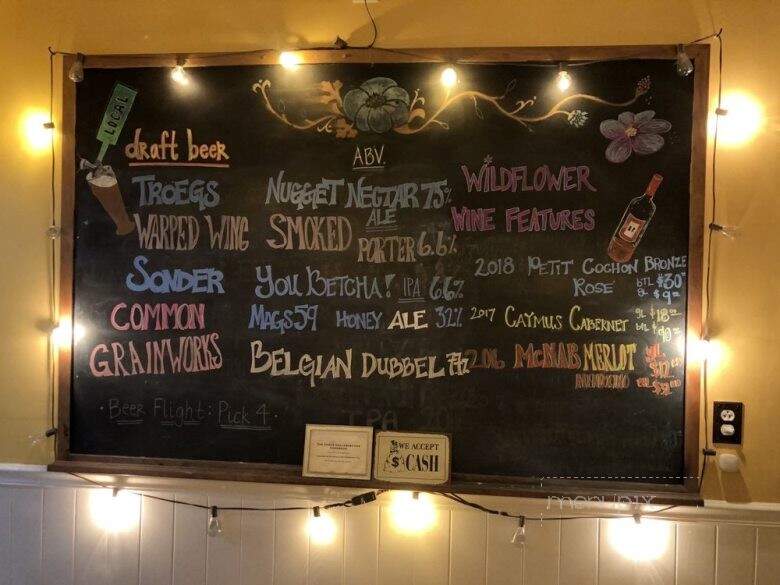 LOCAL
draft beer
ABV.
TROEGS NUGGET NECTAR ALE 7.5%
WARPED WING SMOKED PORTER 6.6%
SONDER YOU BETCHA! IPA 6.6%
COMMON MAGS 59 HONEY ALE 3.2%
GRAINWORKS BELGIAN DUBBEL
Beer Flight: Pick 4
WILDFLOWER
WINE FEATURES
2018 PETIT COCHON BRONZE
ROSE BTL $30
GL $9
2017 CAYMUS CABERNET GL $18
MCNAB MERLOT
$12
IPA
WE ACCEPT
$ CASH
menupix